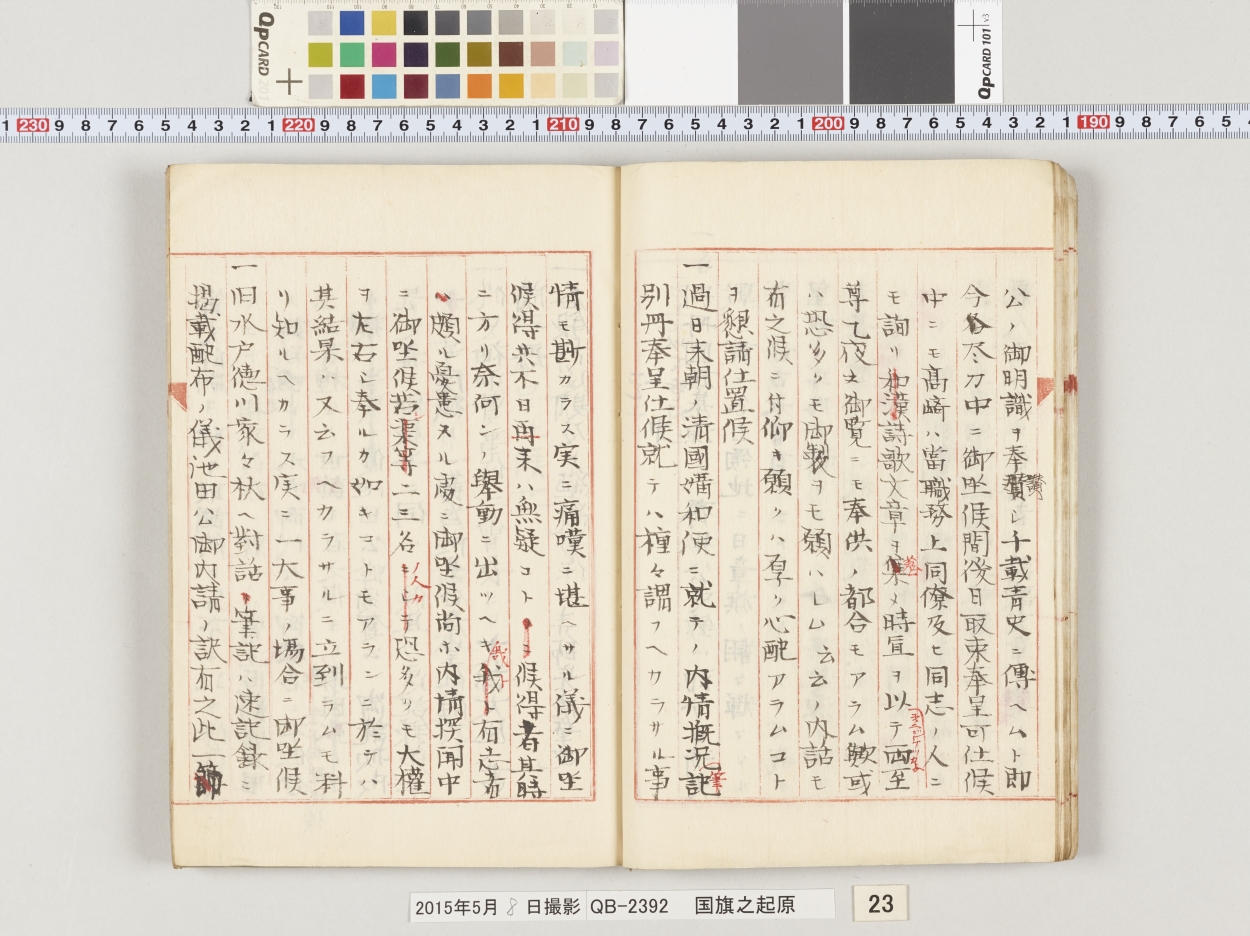 QpCARD 201
QpCARD 101 v3
1 230 9 8 7 6 5 4 3 2 1 220 9 8 7 6 5 4 3 2 1 210 9 8 7 6 5 4 3 2 1 200 9 8 7 6 5 4 3 2 1 190 9 8 7 6 5
公ノ御明識ヲ奉賛シ千載青史ニ傳ヘムト即
今尽力中ニ御坐候間後日取束奉呈可仕候
中ニモ高崎ハ當職務上同僚及ヒ同志ノ人ニ
モ詢リ和漢詩歌文章ヲ集メ時宜ヲ以テ両至
尊乙夜之御覧ニモ奉供ノ都合モアラム歟或
ハ恐多クモ御製ヲモ願ハレム云云ノ内話モ
有之候ニ付仰キ願クハ厚ク心配アラムコト
ヲ懇請仕置候
一過日末朝ノ清國媾和便ニ就テノ内情概況記
筆
別丹奉呈仕候就テハ種々謂フヘカラサル事
情モ尠カラス実ニ痛嘆ニ堪ヘサル儀ニ御坐
候得共不日再来ハ無疑コトヽ候得者其時
ニ方リ奈何ンノ舉動ニ出ツヘキ我ト有志者
ハ頗ル憂慮スル處ニ御坐候尚ホ内情探聞中
ニ御坐候若二三名恐多クモ大權
ヲ左右シ奉ルカ如キコトモアランニ於テハ
其結果ハ又云フヘカラサルニ立到ラムモ料
リ知ルヘカラス実ニ一大事ノ場合ニ御坐候
一旧水戸德川家々秋ヘ對話筆記ハ速記録ニ
揚載配布ノ儀池田公御内請ノ訣有之此一節
2015年5月8日撮影 QB-2392 国旗之起原
23